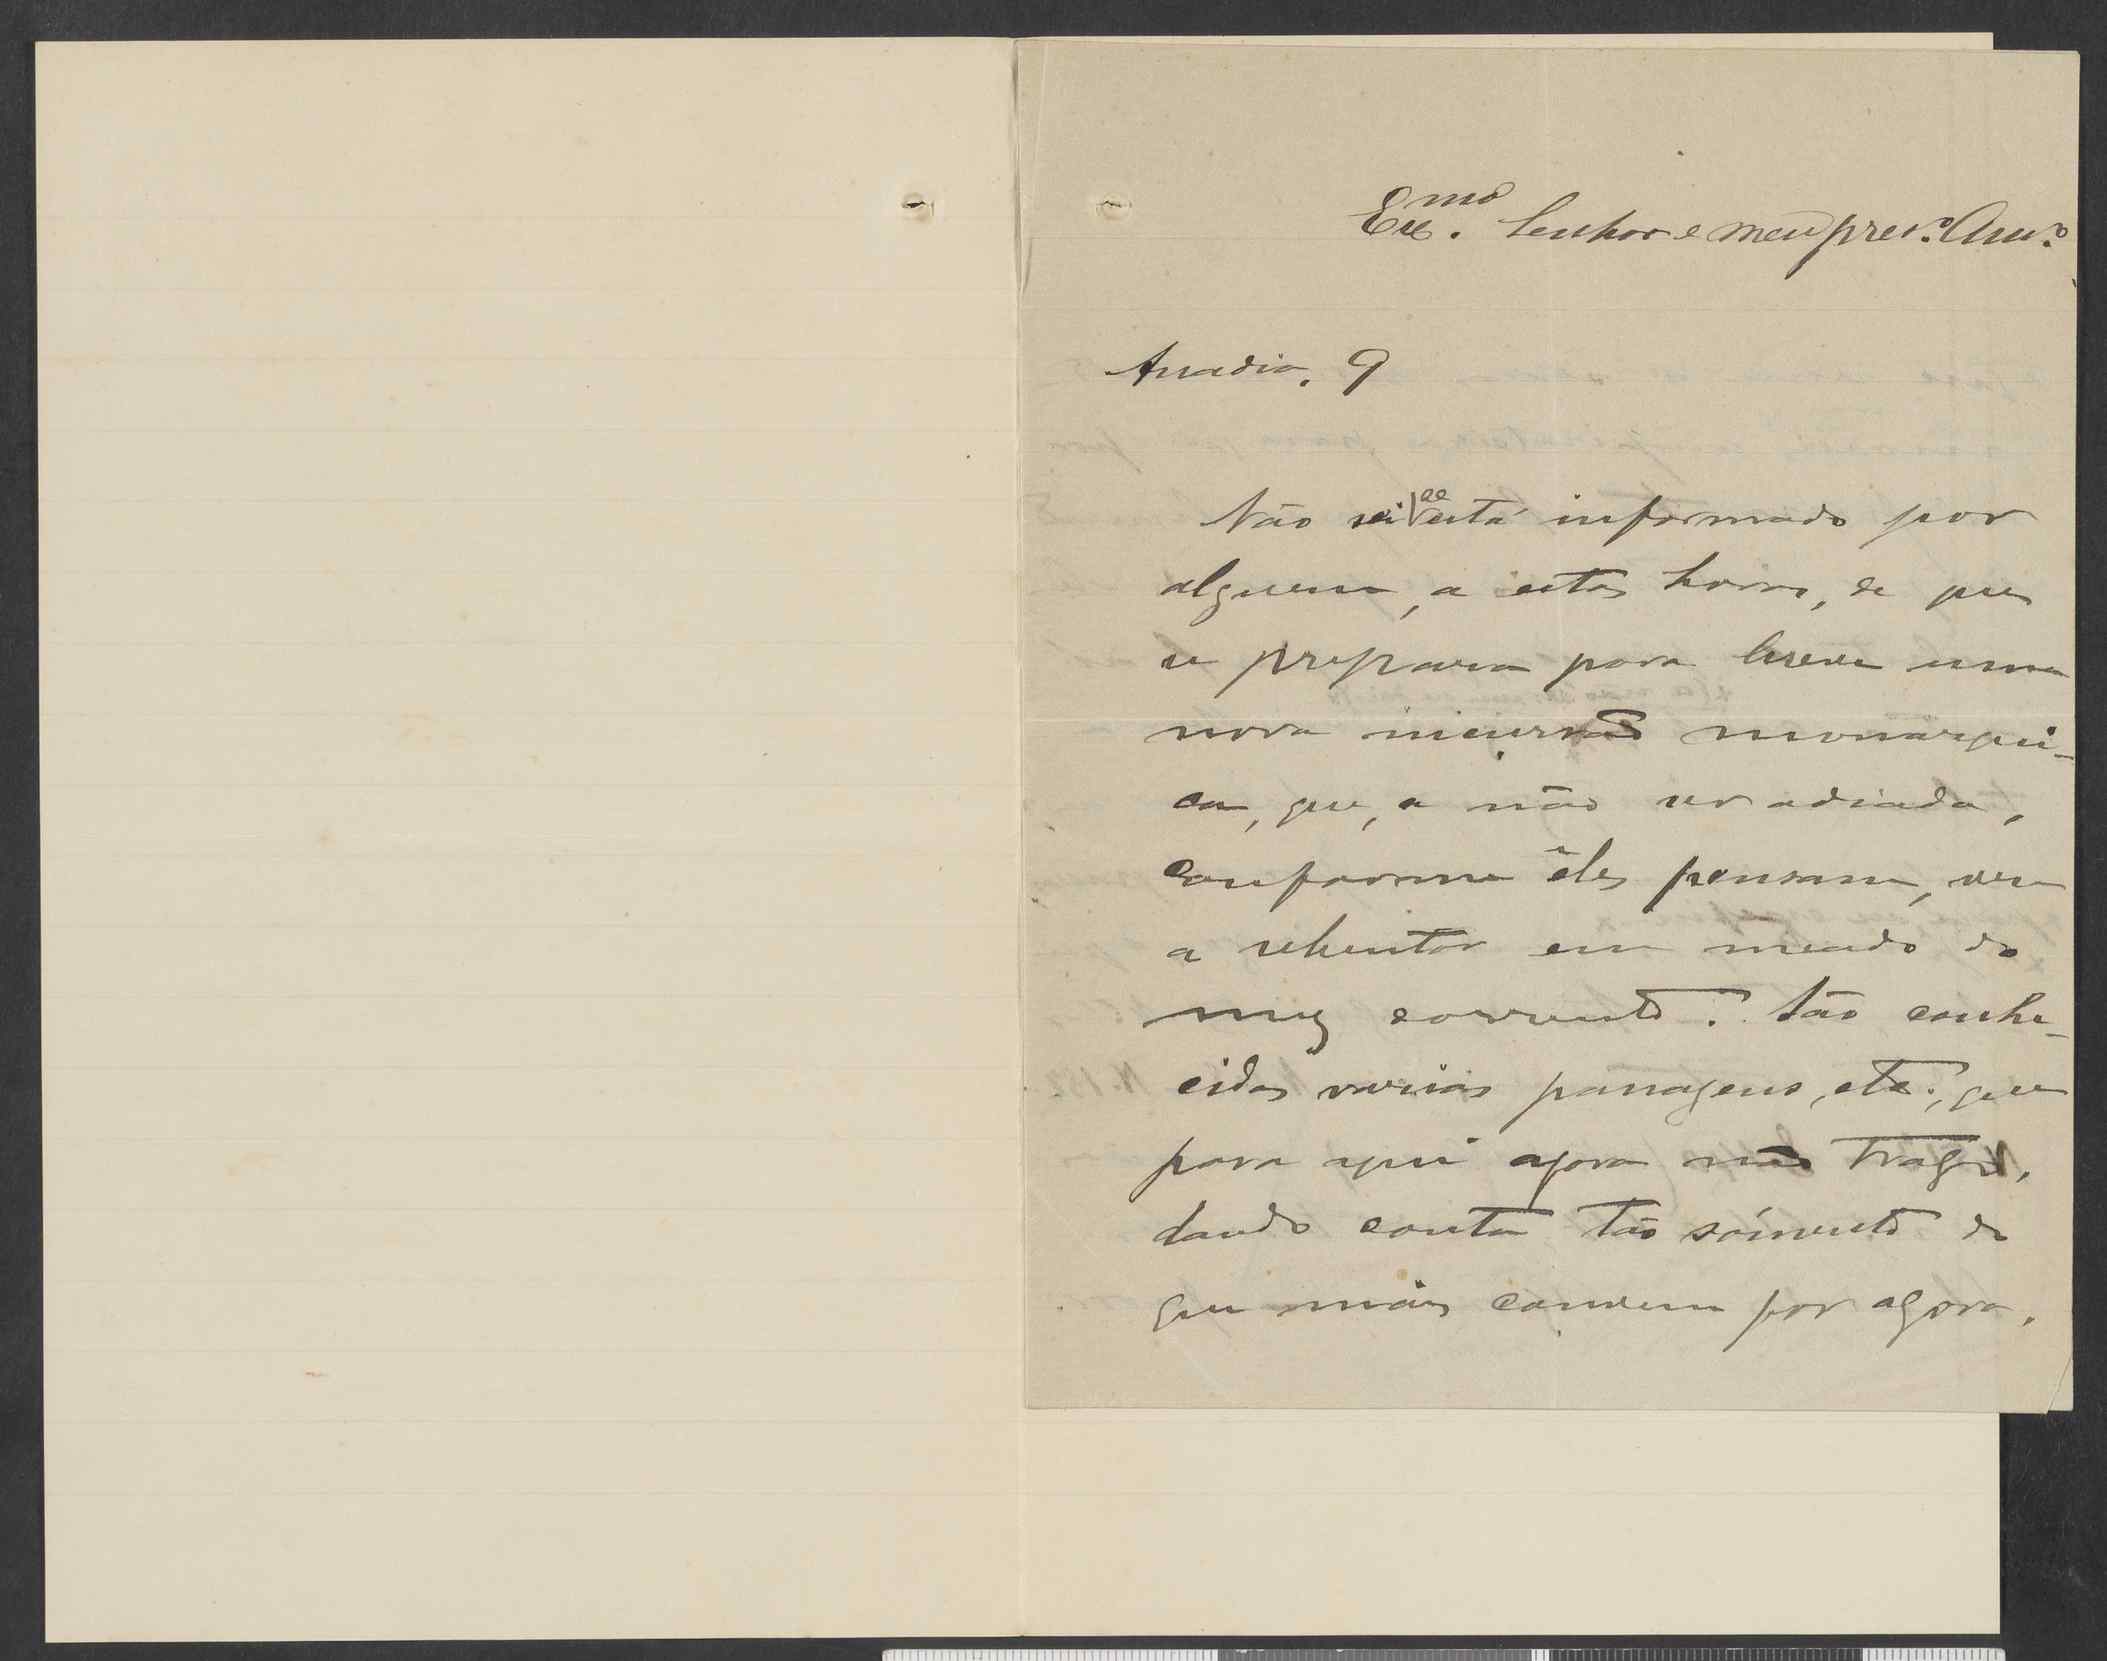 Exᵐᵒ. Senhor e meu prez.º Am.º
Anadia, 9
Não sei se está informado por
alguem, a estas horas, de que
se prepara para breve uma
nova incursão monárqui-
ca, que, a não ser adiada,
conforme êles pensam, vem
a rebentar em meado do
mez corrente. São conhe-
cidas varias passagens, etc., que
para aqui agora não trago,
dando conta tão sómente do
que mais convem por agora.